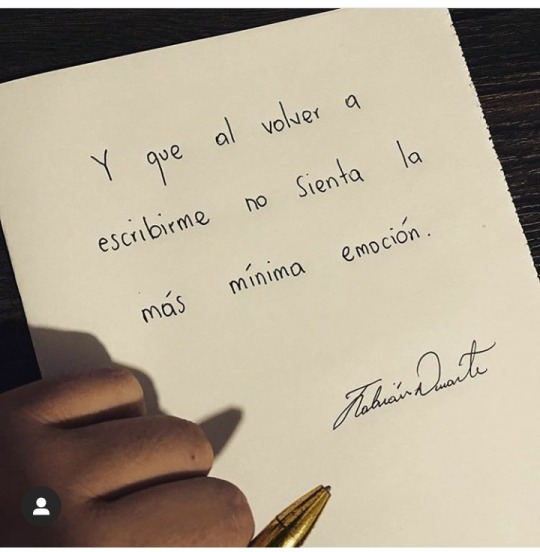 Y que al volver a
escribirme no sienta la
más mínima emoción.
Fabián Duarte